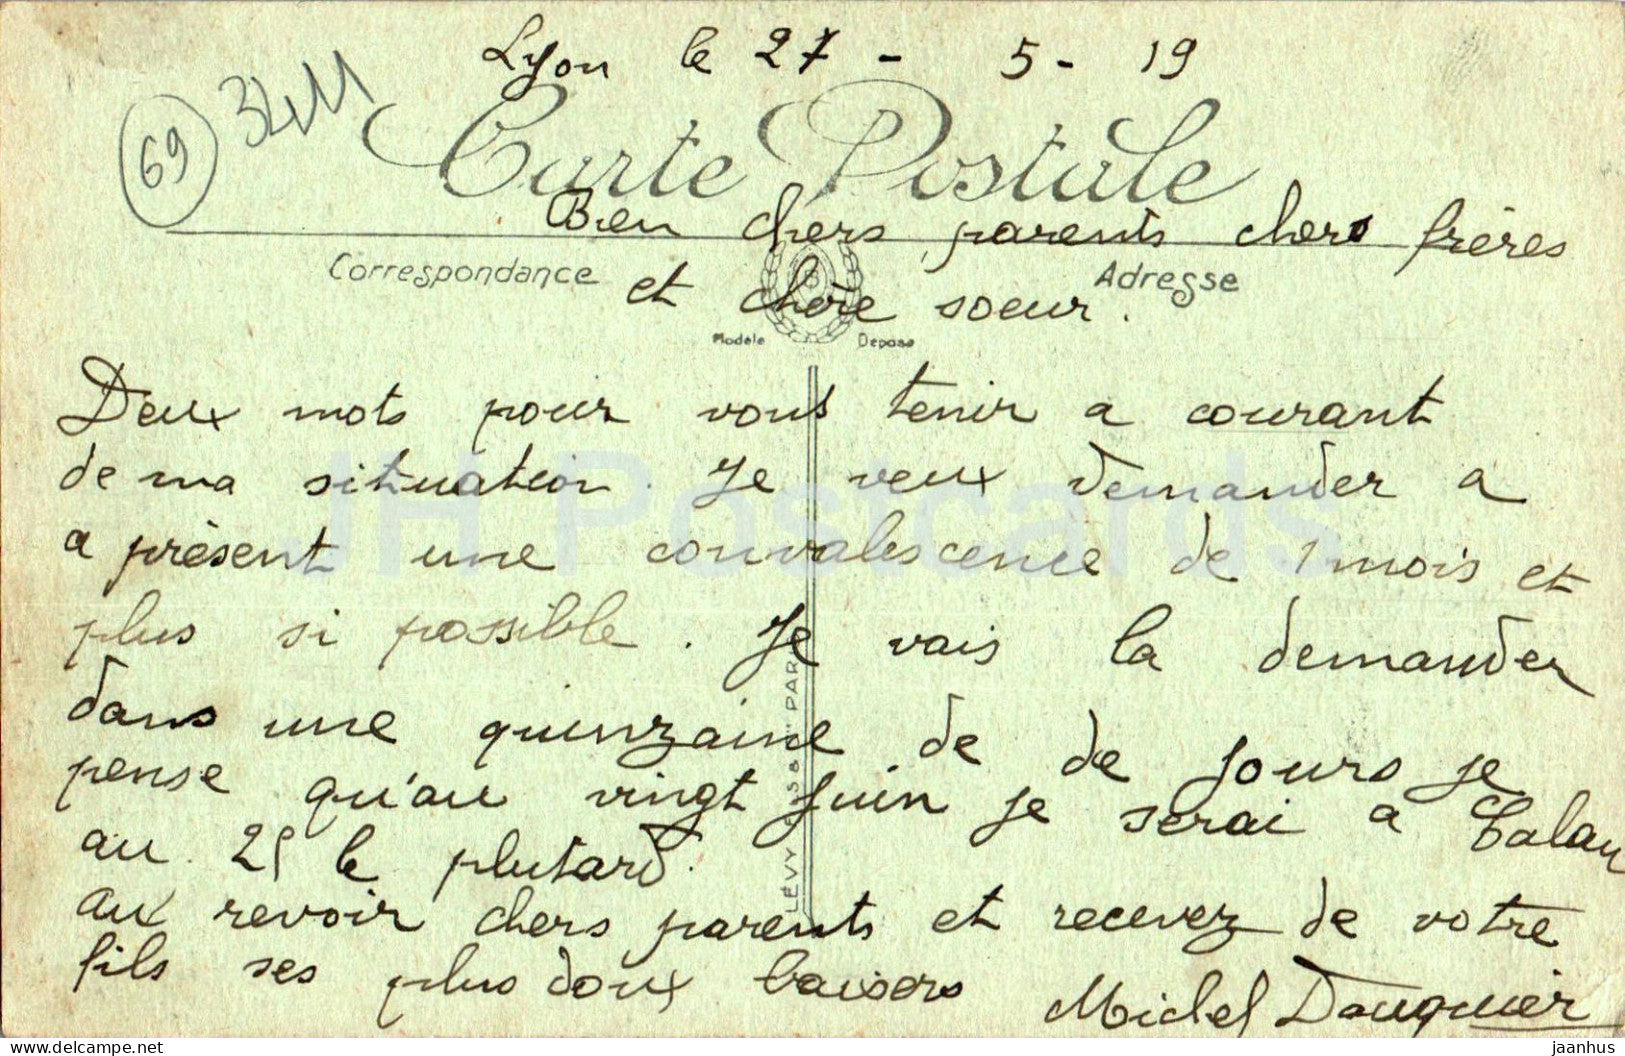 Lyon le 27 - 5 - 19
69
3411
Carte Postale
Bien chers parents chers frères
Correspondance
Adresse
et chère soeur.
Modèle Déposé
Deux mots pour vous tenir a courant
de ma situation. Je veux demander a
a présent une convalescence de 1 mois et
plus si possible. Je vais la demander
dans une quinzaine de de jours je
pense qu'au vingt juin je serai a Calau
au 25 le plutard.
au revoir chers parents et recevez de votre
fils ses plus doux baisers Michel Dauquier
JH Postcards
jaanhus